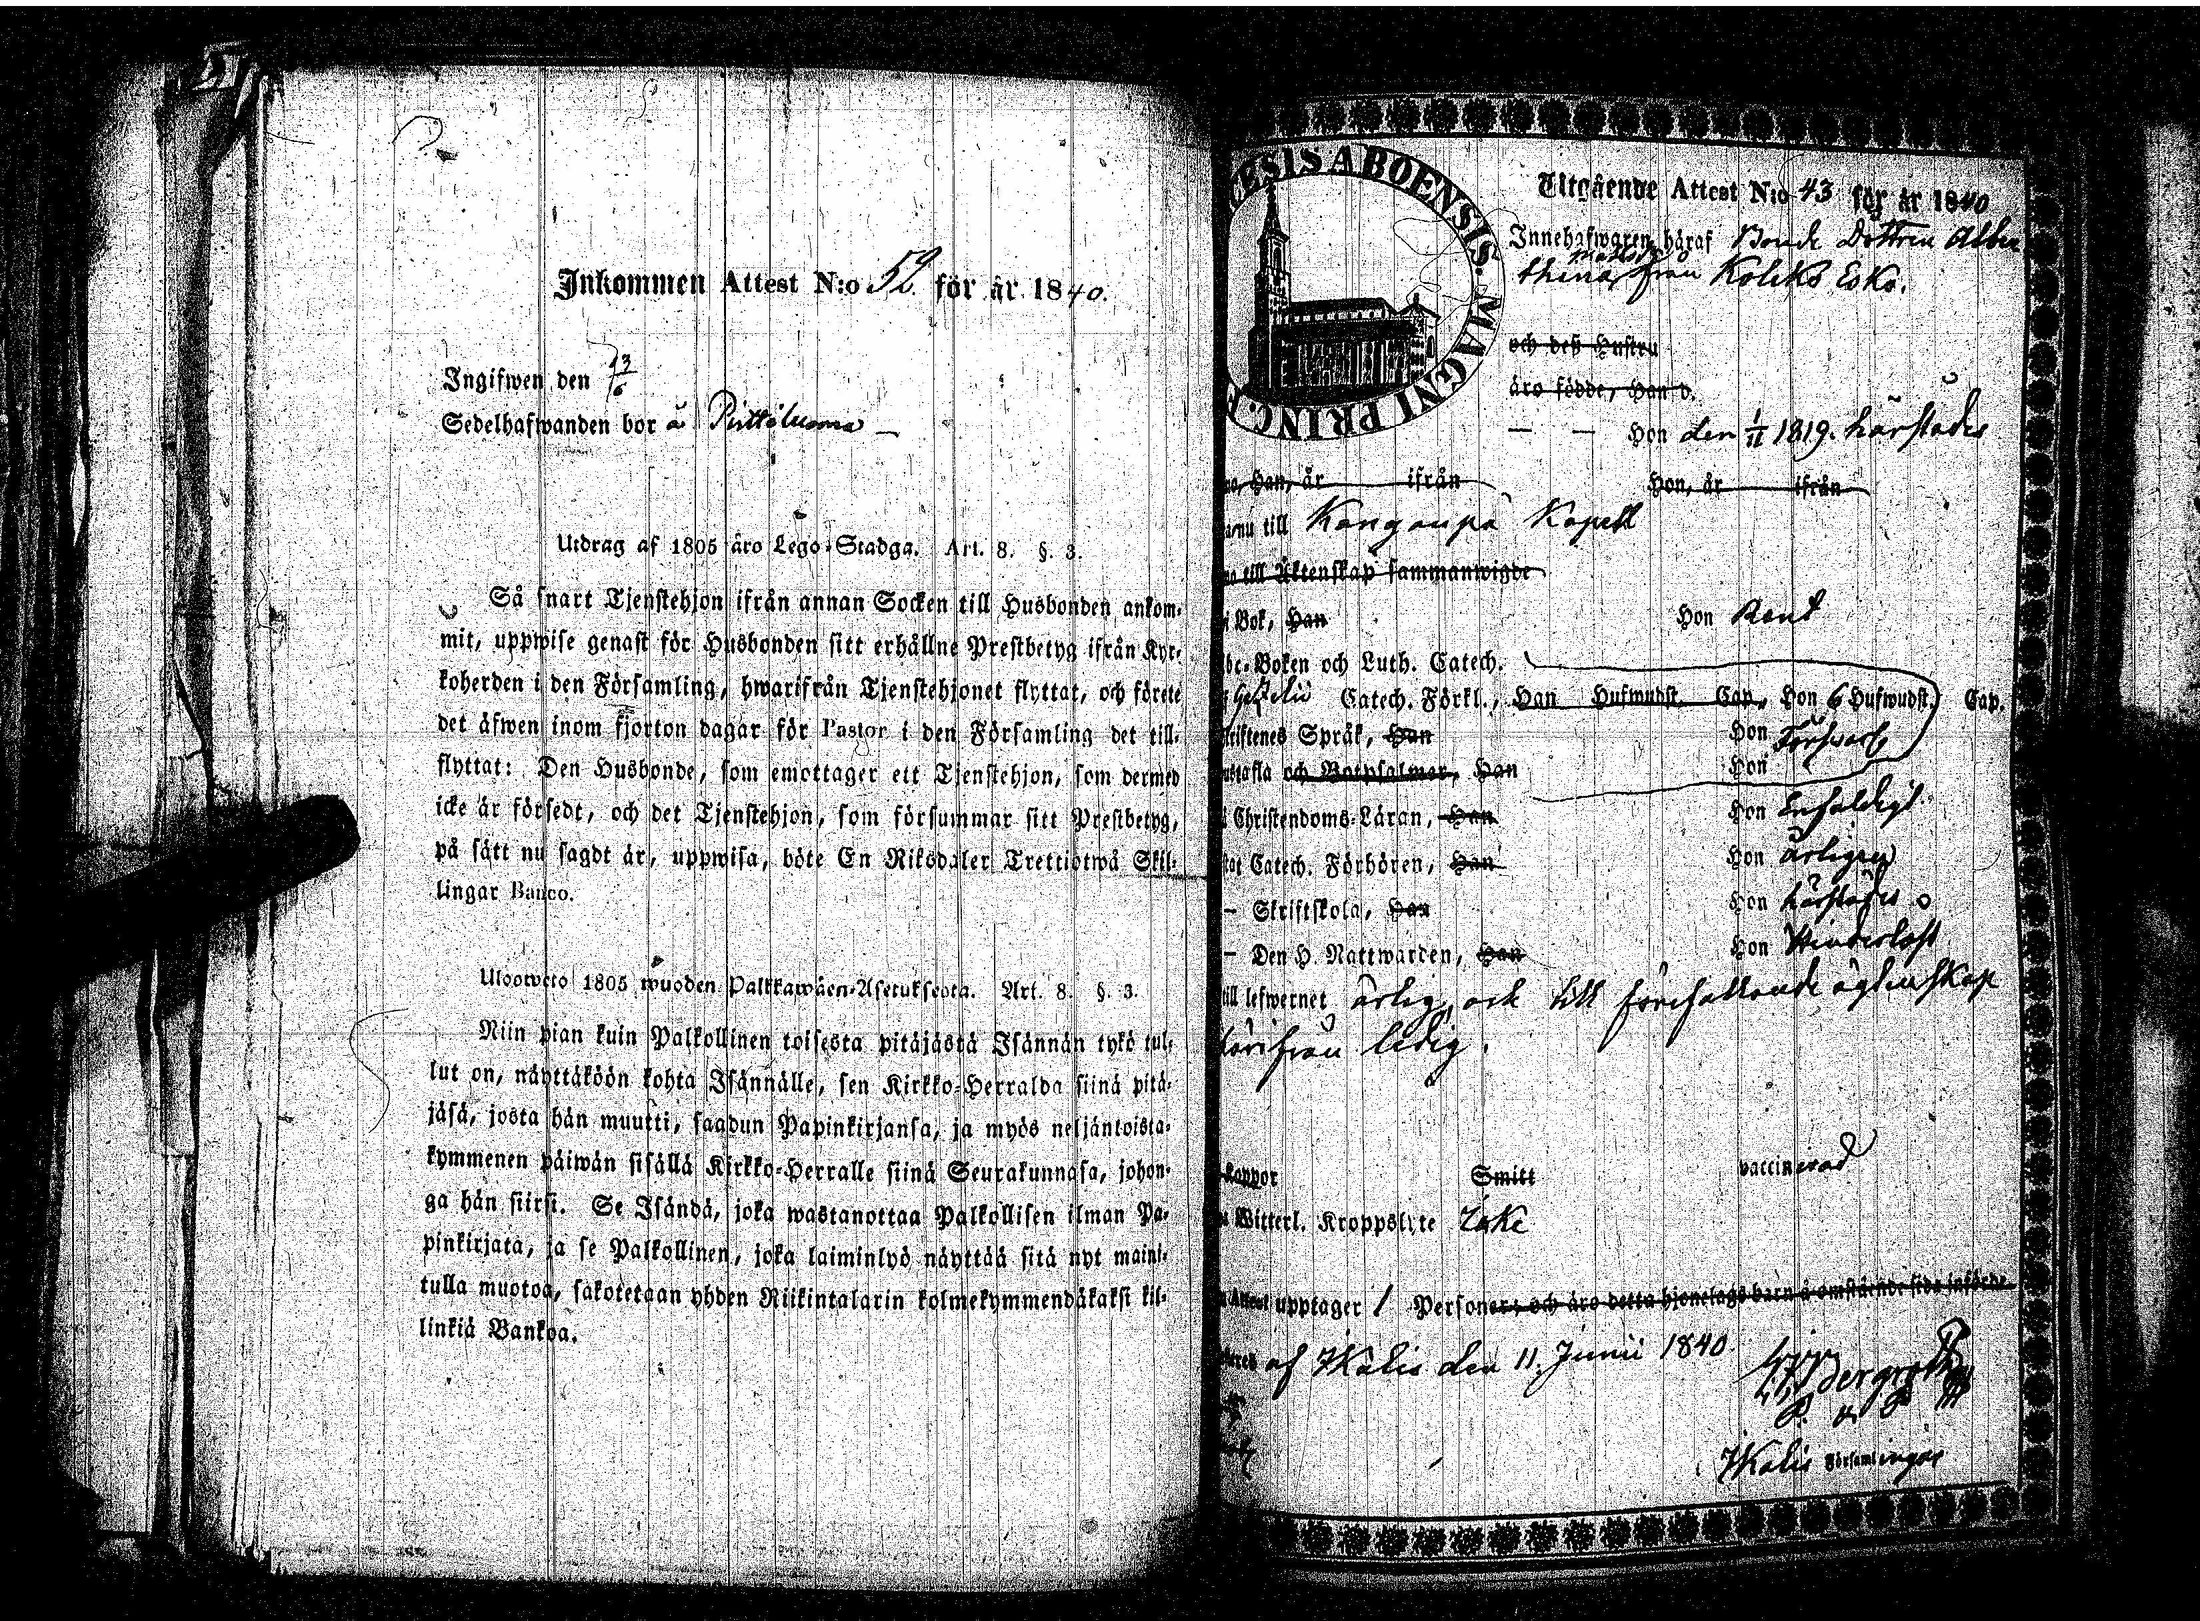 Inkommen Attest N:o 52 för år 1840.
Ingifwen den 13/6
Sedelhafwanden bor å
Utdrag af 1805 åro Lego-Stadga. Art. 8. §. 3.
Så snart Tjenstehjon ifrån annan Socken till Husbonden ankom-
mit, uppwise genast för Husbonden sitt erhållne Prestbetyg ifrån Kyr-
koherden i den Församling, hwarifrån Tjenstehjonet flyttat, och förete
det äfwen inom fjorton dagar för Pastor i den Församling det till-
flyttat: Den Husbonde, som emottager ett Tjenstehjon, som dermed
icke är försedt, och det Tjenstehjon, som försummar sitt Prestbetyg,
på sätt nu sagdt är, uppwisa, böte En Riksdaler Trettiotwå Skil-
lingar Banco.
Ulosweto 1805 wuoden Palkkawäen-Asetuksesta. Art. 8. §. 3.
Niin pian kuin Palkollinen toisesta pitäjästä Isännän tykö tul-
lut on, näyttäköön kohta Isännälle, sen Kirkko-Herralda siinä pitä-
jäsä, josta hän muutti, saadun Papinkirjansa, ja myös neljäntoista-
kymmenen päiwän sisällä Kirkko-Herralle siinä Seurakunnasa, johon-
ga hän siirsi. Se Isändä, joka wastanottaa Palkollisen ilman Pa-
pinkirjata, ja se Palkollinen, joka laiminlyö näyttää sitä nyt maini-
tulla muotoa, sakotetaan yhden Riikintalarin kolmekymmendäkaksi kil-
linkiä Bankoa.
ESIS ABOENSIS. MAGNI PRINC. F
Utgående Attest N:o 43 för år 1840
Innehafwaren häraf Bonde Dottren Alber
thina från Koliks Esko.
och deß Hustru
äro födde, Han d.
— — Hon den 1/11 1819. härstädes
Han, år ifrån Hon, år ifrån
nu till Kanganpä Kapell
till Äktenskap sammanwigde
i Bok, Han Hon Rent
bc-Boken och Luth. Catech.
Catech. Förkl., Han Hufwudst. Cap., Hon 6 Hufwudst. Cap.
Språk, Han Hon Förswarl
och Botpsalmer, Han Hon
Christendoms-Läran, Han Hon Enfaldigt
Catech. Förhören, Han Hon
— Skriftskola, Han Hon härstädes
— Den H. Nattwarden, Han Hon Hinderlöst
till lefwernet ärlig, och till förefallande ägtenskap
härifrån ledig.
koppor Smitt vaccinerad
Witterl. Kroppslyte Icke
Attest upptager 1 Personer, och äro detta hjonelags barn å omstående sida införde
af Ikalis den 11. Junii 1840.
Bergroth
Ikalis Församlingar